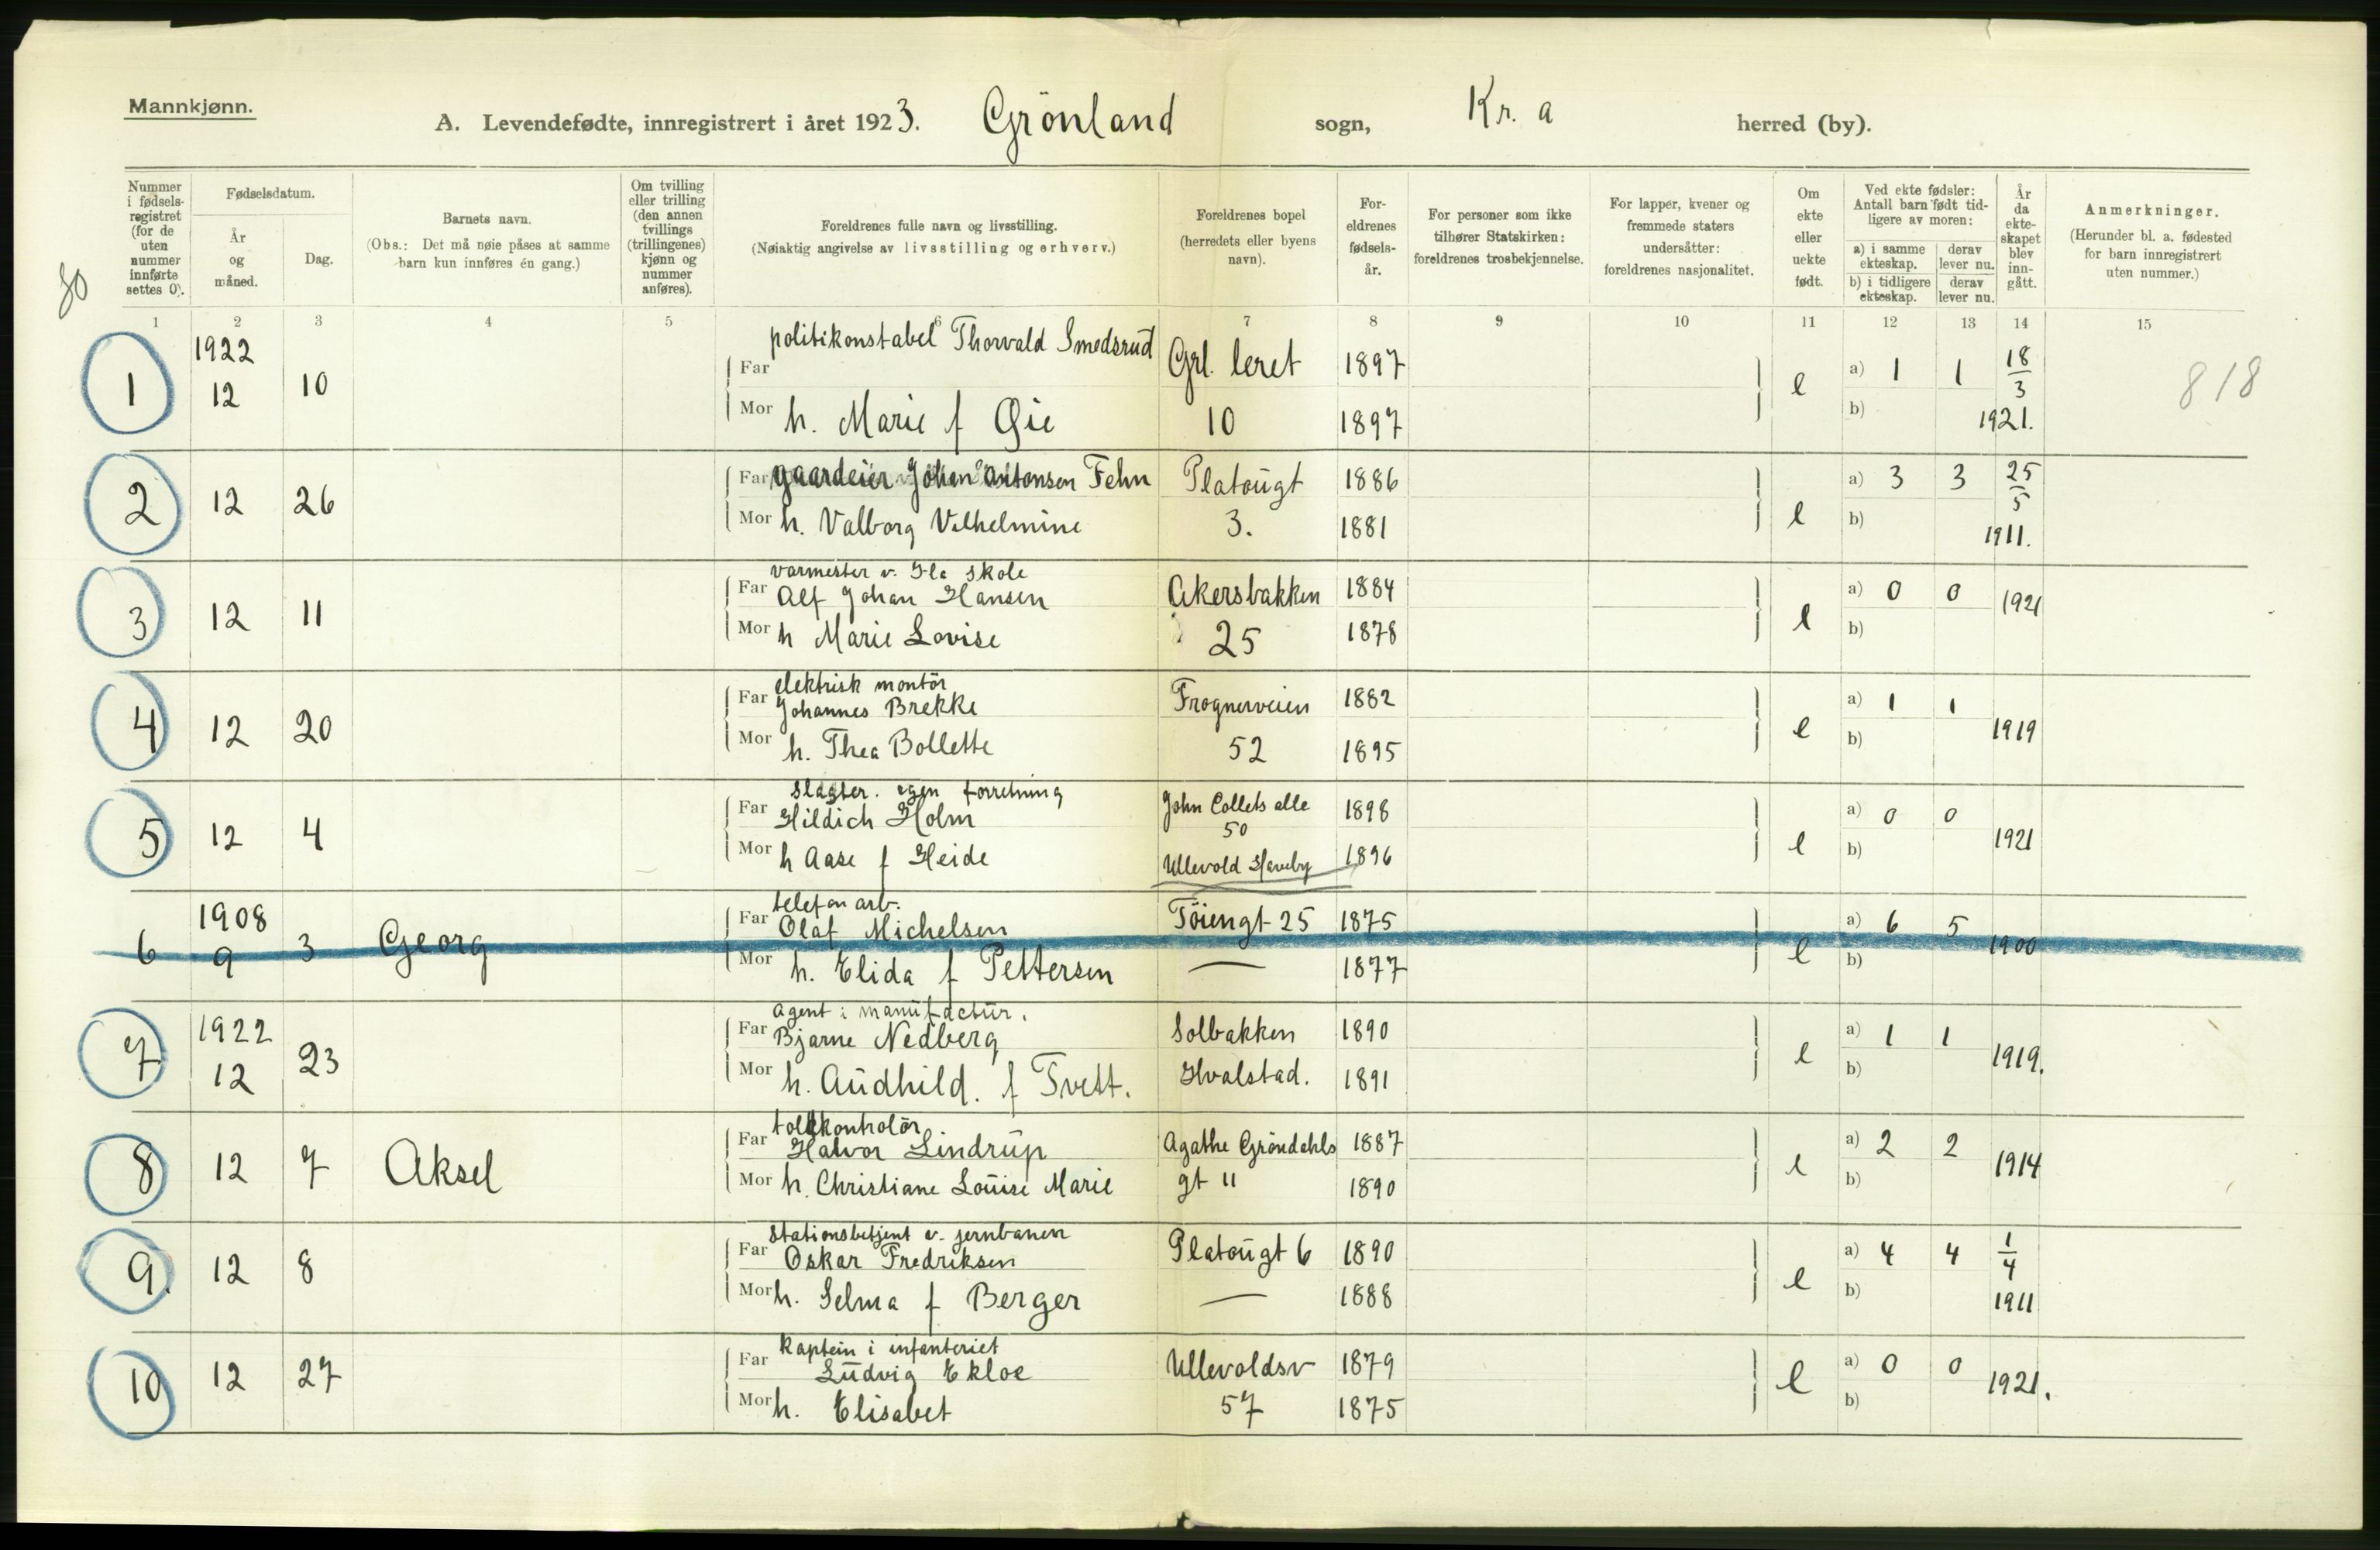 Mannkjønn.
A. Levendefødte, innregistrert i året 1923. Grönland sogn, Kr. a herred (by).
Nummer i fødsels-registret (for de uten nummer innførte settes 0).
Fødselsdatum.
År og måned.
Dag.
Barnets navn.
(Obs.: Det må nøie påses at samme barn kun innføres én gang.)
Om tvilling eller trilling (den annen tvillings (trillingenes) kjønn og nummer anføres).
Foreldrenes fulle navn og livsstilling.
(Nøiaktig angivelse av livsstilling og erhverv.)
Foreldrenes bopel (herredets eller byens navn).
For-eldrenes fødsels-år.
For personer som ikke tilhører Statskirken: foreldrenes trosbekjennelse.
For lapper, kvener og fremmede staters undersåtter: foreldrenes nasjonalitet.
Om ekte eller uekte født.
Ved ekte fødsler: Antall barn født tid-ligere av moren:
a) i samme ekteskap.
derav lever nu.
b) i tidligere ekteskap.
derav lever nu.
År da ekte-skapet blev inn-gått.
Anmerkninger.
(Herunder bl. a. fødested for barn innregistrert uten nummer.)
80
1 2 3 4 5 6 7 8 9 10 11 12 13 14 15
1922 politikonstabel Thorvald Smedsrud
1 12 10 Far Grl. leret 1897 e a) 1 1 18/3 818
Mor h. Marie f Øie 10 1897 b) 1921.
2 12 26 Far gaardeier Johan Antonsen Fehn Platougt 1886 e a) 3 3 25/5
Mor h. Valborg Vilhelmine 3. 1881 b) 1911.
varmester v. Ila skole
3 12 11 Far Alf Johan Hansen Akersbakken 1884 e a) 0 0 1921
Mor h Marie Lovise 25 1878 b)
elektrisk montör
4 12 20 Far Johannes Brekke Frognerveien 1882 e a) 1 1 1919
Mor h. Thea Bollette 52 1895 b)
slagter. egen forretning
5 12 4 Far Hildich Holm John Collets alle 50 1898 e a) 0 0 1921
Mor h Aase f Heide Ullevold Haveby 1896 b)
1908 telefon arb.
6 9 3 Georg Far Olaf Michelsen Töiengt 25 1875 e a) 6 5 1900
Mor h. Elida f Pettersen — 1877 b)
1922 Agent i manufactur.
7 12 23 Far Bjarne Nedberg Solbakken 1890 e a) 1 1 1919.
Mor h. Audhild. f Tvett. Hvalstad. 1891 b)
tollkontrolör
8 12 7 Aksel Far Halvor Lindrup Agathe Gröndahls 1887 e a) 2 2 1914
Mor h. Christiane Louise Marie gt 11 1890 b)
Stationsbetjent v. jernbanen
9. 12 8 Far Oskar Fredriksen Platougt 6 1890 e a) 4 4 1/4
Mor h. Selma f Berger — 1888 b) 1911
Kaptein i infanteriet
10 12 27 Far Ludvig Ekloe Ullevoldsv 1879 e a) 0 0 1921.
Mor h. Elisabet 57 1875 b)